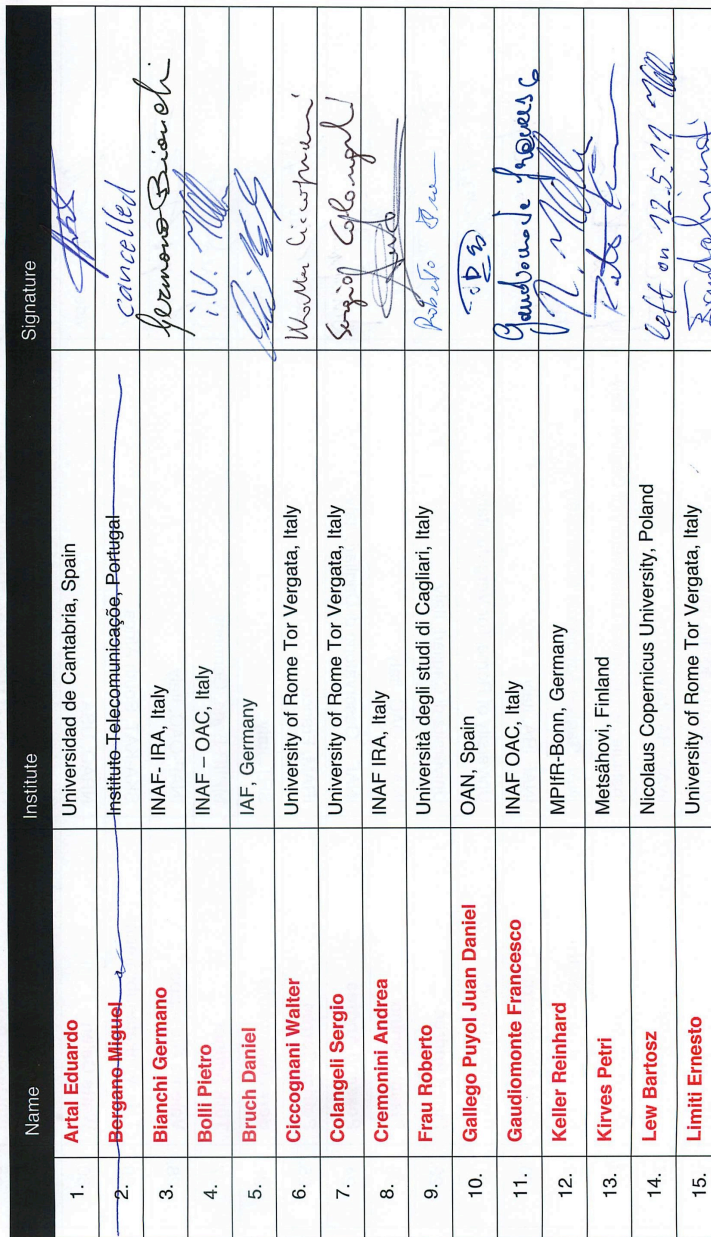 Name Institute Signature
1. Artal Eduardo Universidad de Cantabria, Spain
2. Bergano Miguel Instituto Telecomunicaçõe, Portugal cancelled
3. Bianchi Germano INAF- IRA, Italy Germano Bianchi
4. Bolli Pietro INAF – OAC, Italy i.V.
5. Bruch Daniel IAF, Germany
6. Ciccognani Walter University of Rome Tor Vergata, Italy Walter Ciccognani
7. Colangeli Sergio University of Rome Tor Vergata, Italy Sergio Colangeli
8. Cremonini Andrea INAF IRA, Italy
9. Frau Roberto Università degli studi di Cagliari, Italy Roberto Frau
10. Gallego Puyol Juan Daniel OAN, Spain
11. Gaudiomonte Francesco INAF OAC, Italy Gaudiomonte Francesco
12. Keller Reinhard MPIfR-Bonn, Germany
13. Kirves Petri Metsähovi, Finland
14. Lew Bartosz Nicolaus Copernicus University, Poland left on 12.5.11
15. Limiti Ernesto University of Rome Tor Vergata, Italy